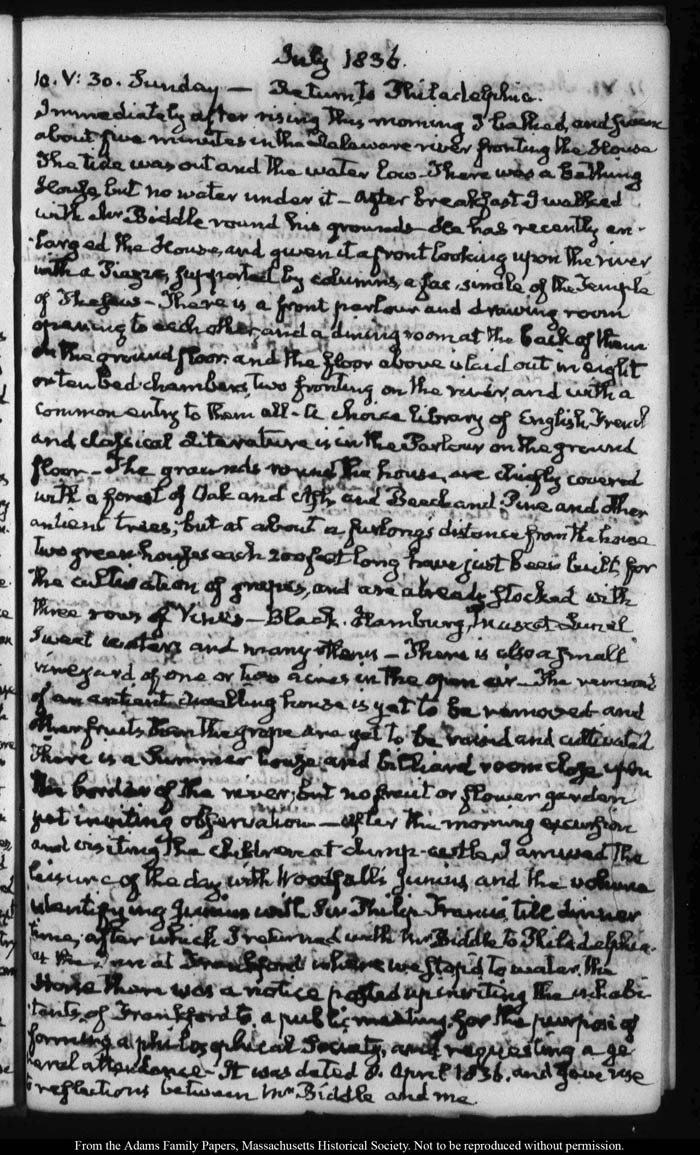 July 1836.
10. V: 30. Sunday — Return to Philadelphia.
Immediately after rising this morning I bathed, and swam
about five minutes in the Delaware river fronting the House
The tide was out and the water low — There was a bathing
House, but no water under it — After breakfast I walked
with Mr Biddle round his grounds — He has recently en-
-larged the House, and given it a front looking upon the river
with a Piazza, supported by columns, a fac-simile of the Temple
of Theseus — There is a front parlour and drawing room
opening to each other, and a dining room at the back of them
on the ground floor; and the floor above is laid out in eight
or ten bed-chambers, two fronting on the river, and with a
common entry to them all — A choice library of English, French
and classical literature is in the Parlour on the ground
floor — The grounds round the house, are chiefly covered
with a forest of Oak and Ash, and Beech and Pine and other
antient trees; but at about a furlong's distance from the house
two green houses each 200 feet long have just been built, for
the cultivation of grapes, and are already stocked with
three rows of Vines — Black Hamburg, Muscat
Sweet waters and many others — There is also a small
vineyard of one or two acres in the open air — The remains
of an antient dwelling house is yet to be removed and
other fruits than the grape are yet to be raised and cultivated
There is a Summer house and billiard room close upon
the border of the river; but no fruit or flower garden
yet inviting observation — After this morning excursion
and visiting the children at I amused the
leisure of the day with Woodfall's Junius, and the volume
identifying Junius with Sir Philip Francis, till dinner
time, after which I returned with Mr Biddle to Philadelphia.
At the Inn at Frankford where we stop'd to water the
Horse there was a notice posted up inviting the inhabi-
tants of Frankford to a public meeting for the purpose of
forming a philosophical Society, and requesting a ge
neral attendance — It was dated April 1836. and gave rise
to reflections between Mr Biddle and me.
From the Adams Family Papers, Massachusetts Historical Society. Not to be reproduced without permission.